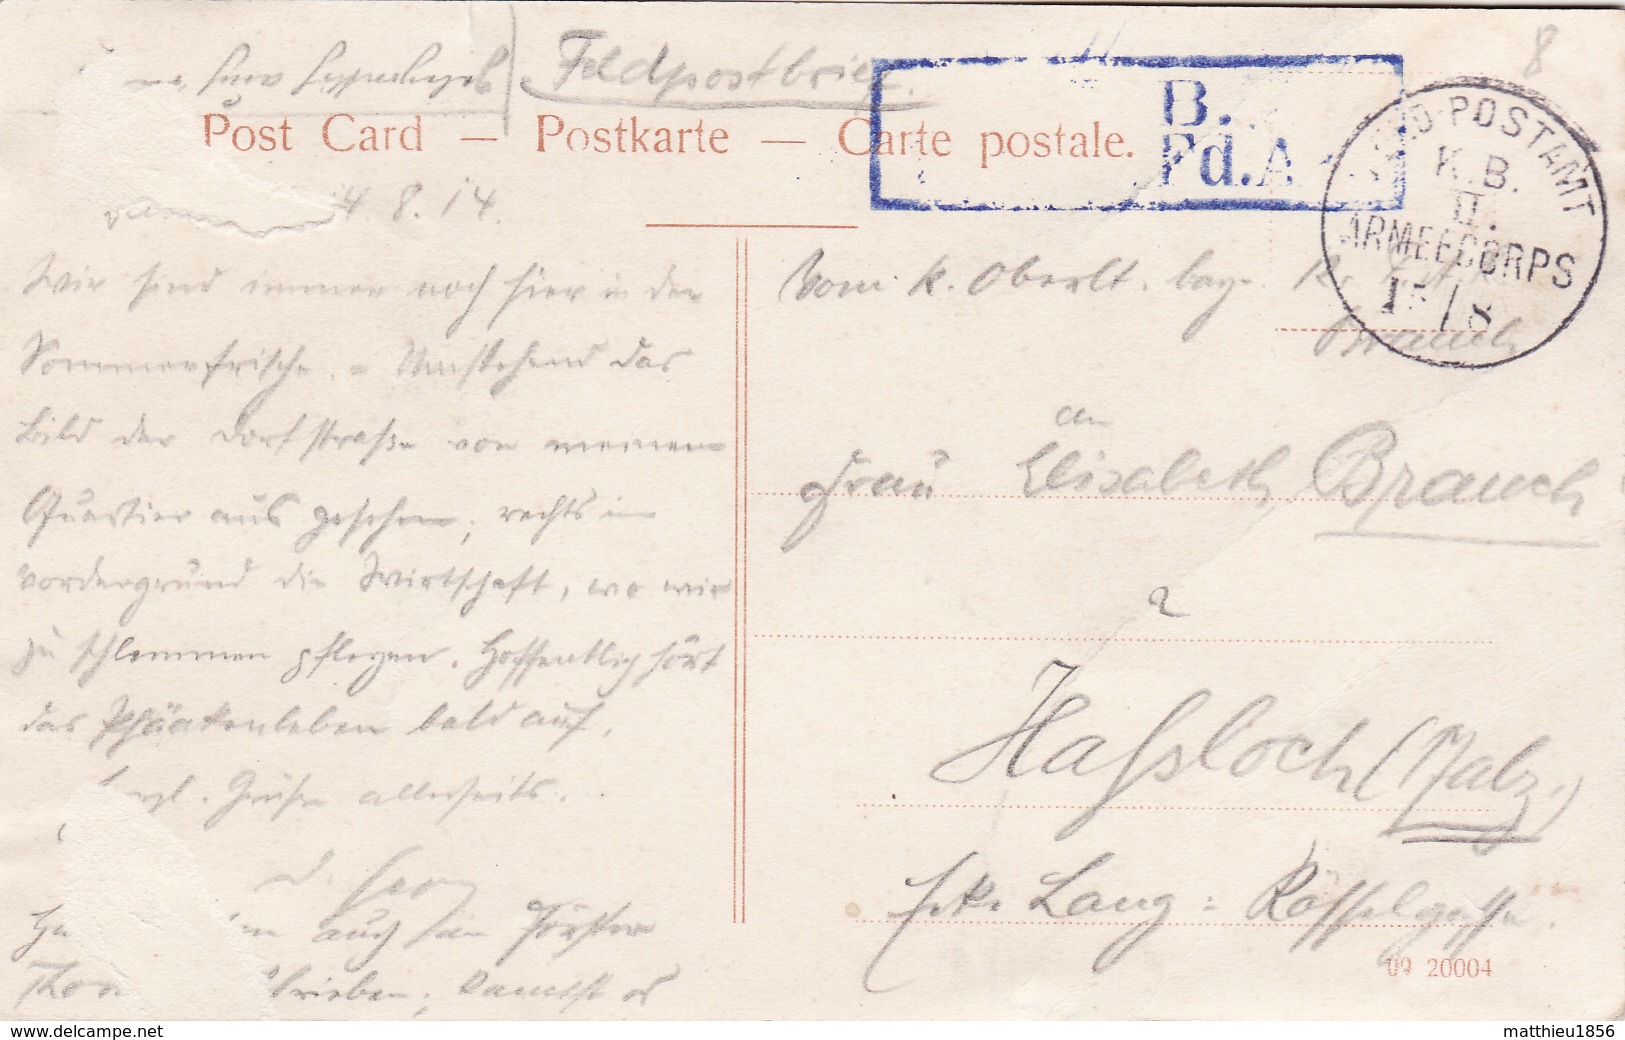 Feldpostbrief.
Post Card — Postkarte — Carte postale.
B.
Fd. A
FELD-POSTAMT
K. B.
II.
ARMEECORPS
15/8
8
14. 8. 14.
Wir sind immer noch hier in der
Sommerfrische. - Umstehend das
Bild der Dorfstraße von meinem
Quartier aus gesehen, rechts im
Vordergrund die Wirtschaft, wo wir
zu schlemmen pflegen. Hoffentlich hört
das Phäakenleben bald auf.
Herzl. Grüße allerseits.
d. Georg
auch
Vom k. Oberlt. bayr.
Brauch
an
Frau Elisabeth Brauch
Hassloch (Pfalz.)
Ecke Lang = Rösselgasse.
09 20004
www.delcampe.net
matthieu1856